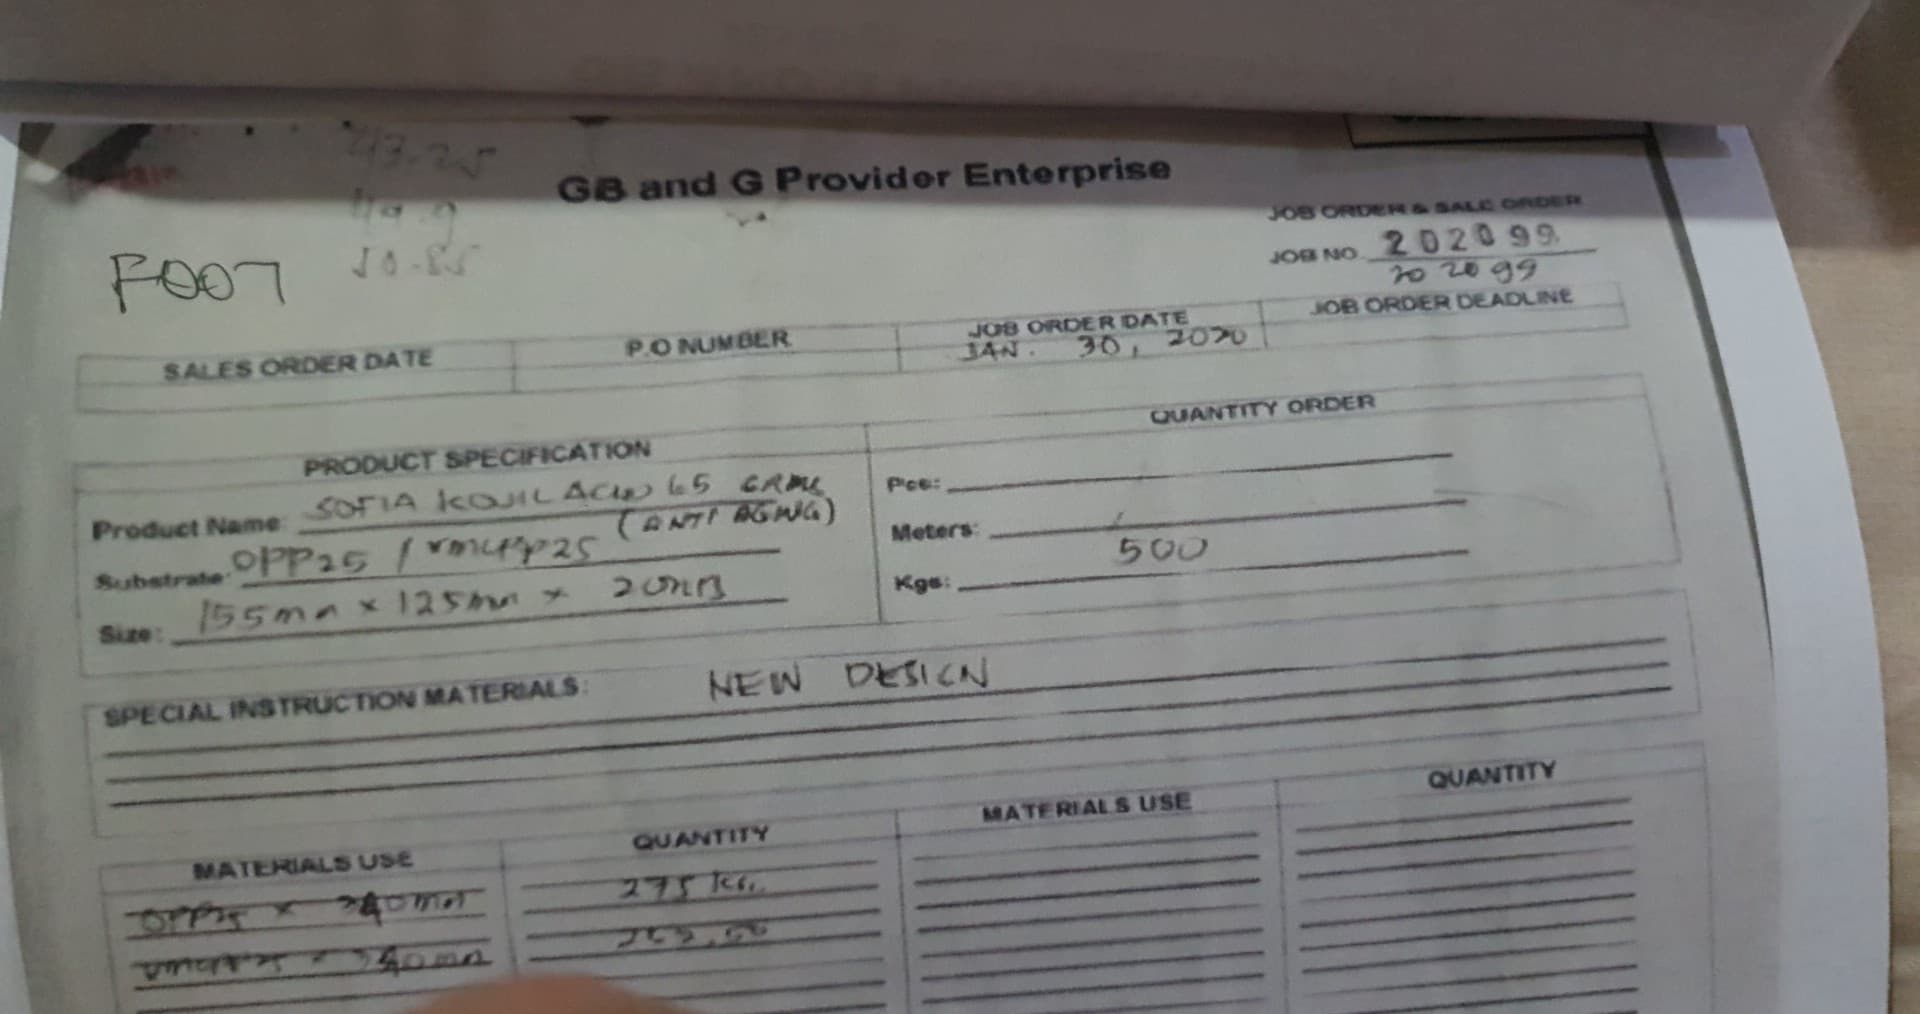 43.25
49.9
50.85
F007
GB and G Provider Enterprise
JOB ORDER & SALE ORDER
JOB NO. 202099
20 20 99
SALES ORDER DATE
P.O NUMBER
JOB ORDER DATE
JAN. 30, 2020
JOB ORDER DEADLINE
PRODUCT SPECIFICATION
Product Name: SOFIA KOJIC ACID 65 GRAM
(ANTI AGING)
Substrate: OPP25 / VMCPP25
Size: 155mm x 125mm x
QUANTITY ORDER
Pcs:
Meters:
Kgs: 500
SPECIAL INSTRUCTION MATERIALS: NEW DESIGN
MATERIALS USE
QUANTITY
MATERIALS USE
QUANTITY
OPP25 x 340mm
275 KG.